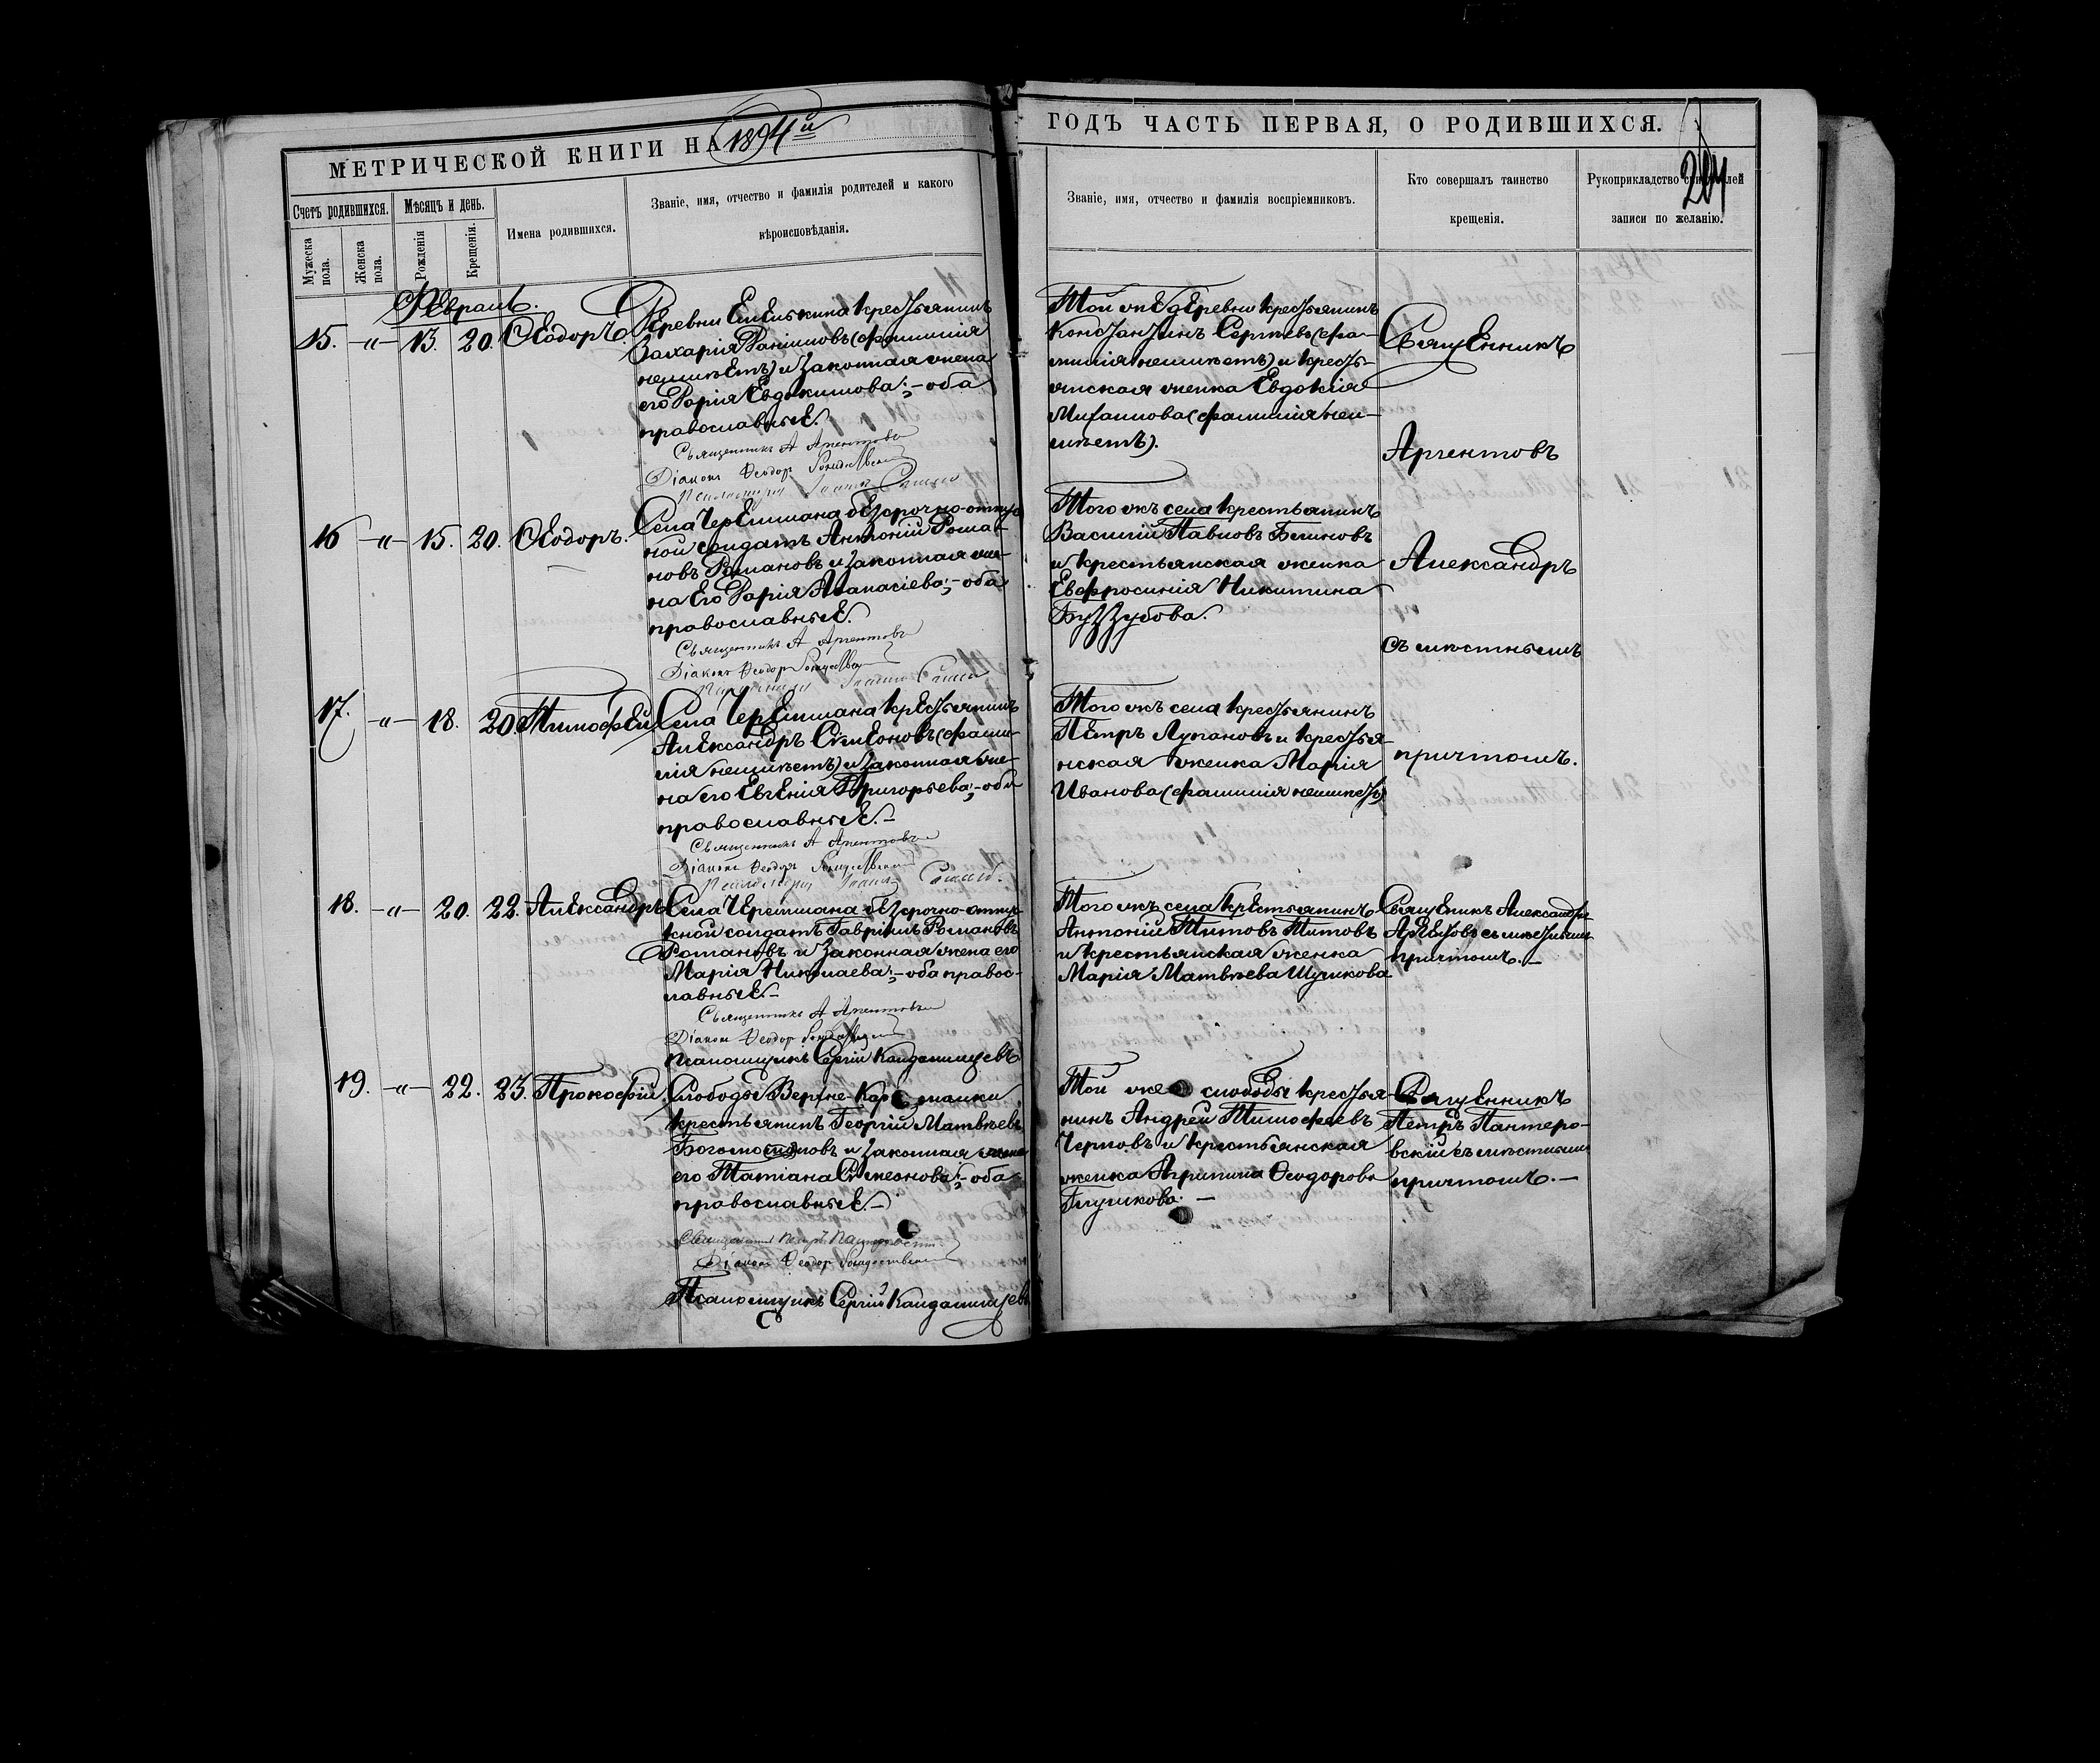 МЕТРИЧЕСКОЙ КНИГИ НА 1894й
ГОДЪ ЧАСТЬ ПЕРВАЯ, О РОДИВШИХСЯ.
204
Счетъ родившихся.
Мужеска пола.
Женска пола.
Мѣсяцъ и день.
Рожденія
Крещенія.
Имена родившихся.
Званіе, имя, отчество и фамилія родителей и какого
вѣроисповѣданія.
Званіе, имя, отчество и фамилія воспріемниковъ.
Кто совершалъ таинство
крещенія.
Рукоприкладство свидѣтелей
записи по желанію.
Февраль.
15. -„- 13. 20. Ѳеодоръ.
Деревни Емелькина крестьянинъ
Захарія (фамилія
неимѣетъ) и законная жена
его Дарія Евдокимова; - оба
православные.
Священникъ А Аргентовъ
Діаконъ Ѳеодор
Той же деревни крестьянинъ
Константинъ Сергѣевъ (фа-
милія неимѣетъ) и кресть-
янская женка Евдокія
Михаилова (фамилія неи-
мѣетъ).
Священникъ
Аргентовъ
16 -„- 15. 20. Ѳеодоръ.
Села Черемшана безсрочно-отпус
ной солдатъ Антоній Рома-
новъ Романовъ и законная же-
на его Дарія Аѳанасіева; - оба
православные.
Священникъ А Аргентовъ
Діаконъ Ѳеодор
Того жъ села крестьянинъ
Василій Павловъ Блиновъ
и крестьянская женка
Евфросинія Никитина
Буззубова.
Александръ
съ мѣстнымъ
17. -„- 18. 20. Тимофей
Села Черемшана крестьянинъ
Александръ Симеоновъ (фами-
лія неимѣетъ) и законная же-
на его Евгенія Григорьева; - оба
православные. -
Священникъ А Аргентовъ
Діаконъ Ѳеодор
Того жъ села крестьянинъ
Петръ Лупановъ и крестья-
нская женка Марія
Иванова (фамилія неимѣетъ)
причтомъ.
18. -„- 20. 22. Александръ
Села Черемшана безсрочно-отпус-
кной солдатъ Гавріилъ Романовъ
Романовъ и законная жена его
Марія Николаева; - оба правос-
лавные. -
Священникъ А Аргентовъ
Діакон Ѳеодор
Псаломщикъ Сергій Кандалинцевъ
Того жъ села крестьянинъ
Антоній Титовъ Титовъ
и крестьянская женка
Марія Матвѣева Шунікова
Священикъ Александръ
Аргентовъ съ мѣстнымъ
причтомъ. -
19. -„- 22. 23. Прокофій
Слободы Верхне-Кармалки
крестьянинъ Георгій Матвѣевъ
Богомоловъ и законная жена
его Татіана Симеонова; - оба
православные. -
Священникъ Петръ Пантеровскій
Діаконъ Ѳеодор
Псаломщикъ Сергій Кандалинцевъ
Той же слободы крестья
нинъ Андрей Тимофеевъ
Черновъ и крестьянская
женка Агрипина Ѳеодорова
Глушкова. -
Священникъ
Петръ Пантеро-
вскій съ мѣстнымъ
причтомъ. -